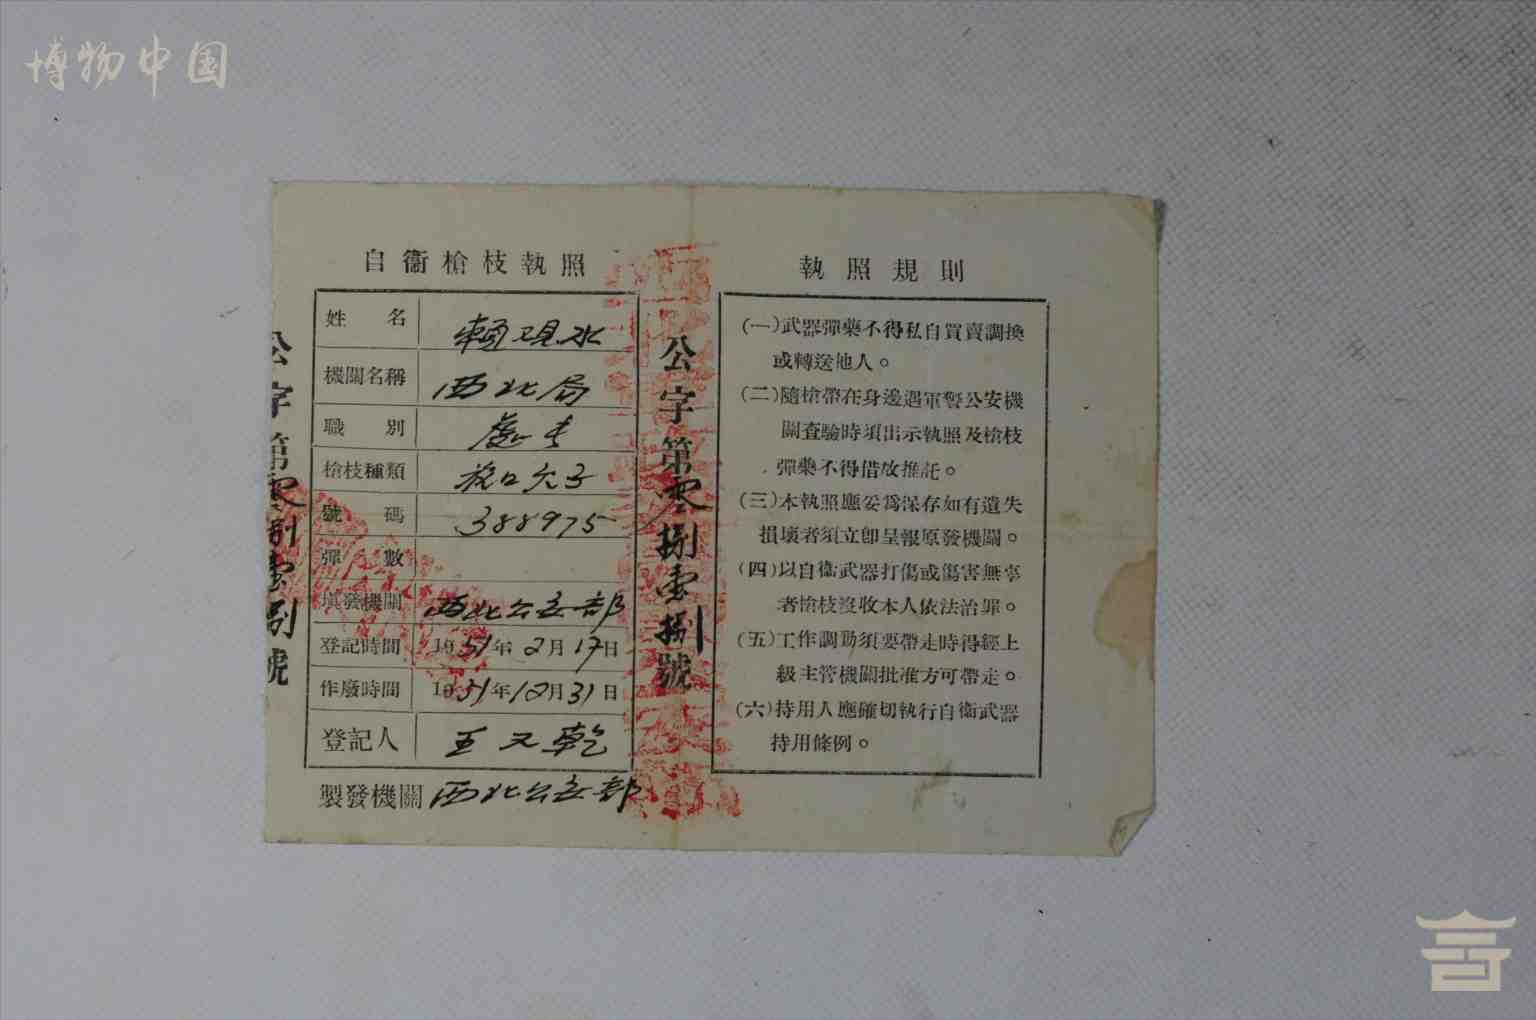 博物中国
自衞槍枝執照
姓名 賴現水
機關名稱 西北局
職別
槍枝種類
號碼 388975
彈數
填發機關 西北公安部
登記時間 1951年2月17日
作廢時間 1951年12月31日
登記人 王又乾
製發機關 西北公安部
公字第零捌壹捌號
公字第零捌壹捌號
執照規則
(一)武器彈藥不得私自買賣調換
或轉送他人。
(二)隨槍帶在身邊遇軍警公安機
關查驗時須出示執照及槍枝
彈藥不得借故推託。
(三)本執照應妥爲保存如有遺失
損壞者須立卽呈報原發機關。
(四)以自衞武器打傷或傷害無辜
者槍枝沒收本人依法治罪。
(五)工作調動須要帶走時得經上
級主管機關批准方可帶走。
(六)持用人應確切執行自衞武器
持用條例。